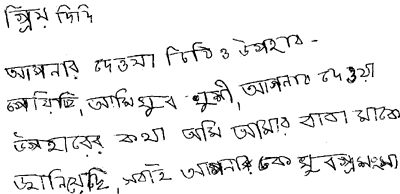 প্রিয় দিদি
আপনার দেওয়া চিঠি ও উপহার -
পেয়েছি, আমি খুব খুশী, আপনার দেওয়া
উপহারের কথা আমি আমার বাবা মাকে
জানিয়েছি, সবাই আপনাকে খুব প্রশংসা